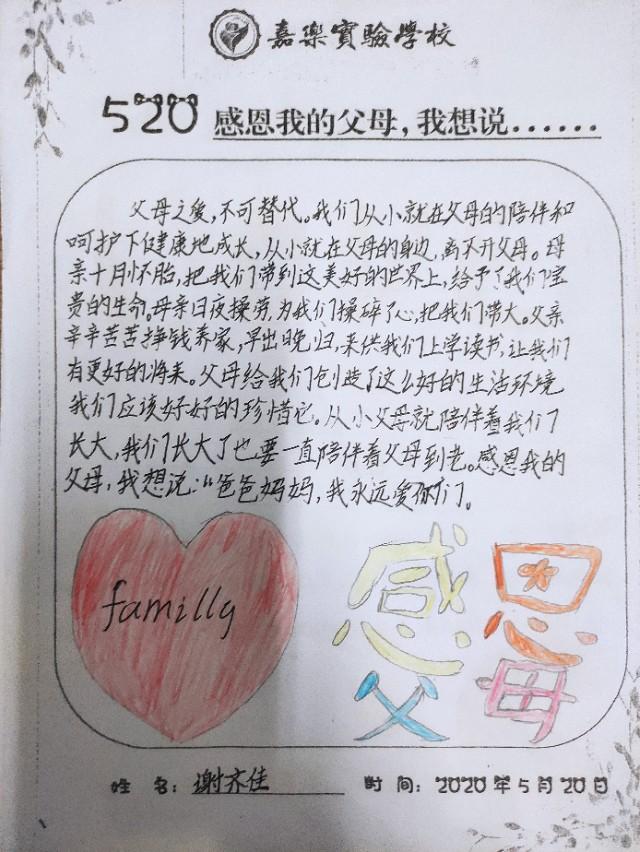 嘉樂實驗學校
520 感恩我的父母，我想说......
父母之爱，不可替代。我们从小就在父母的陪伴和
呵护下健康地成长，从小就在父母的身边，离不开父母。母
亲十月怀胎，把我们带到这美好的世界上，给予了我们宝
贵的生命。母亲日夜操劳，为我们操碎了心，把我们带大。父亲
辛辛苦苦挣钱养家，早出晚归，来供我们上学读书，让我们
有更好的将来。父母给我们创造了这么好的生活环境
我们应该好好的珍惜它。从小父母就陪伴着我们
长大，我们长大了也要一直陪伴着父母到老。感恩我的
父母，我想说：“爸爸妈妈，我永远爱你们。
familly
感恩
父母
姓 名：谢齐佳
时 间：2020年5月20日